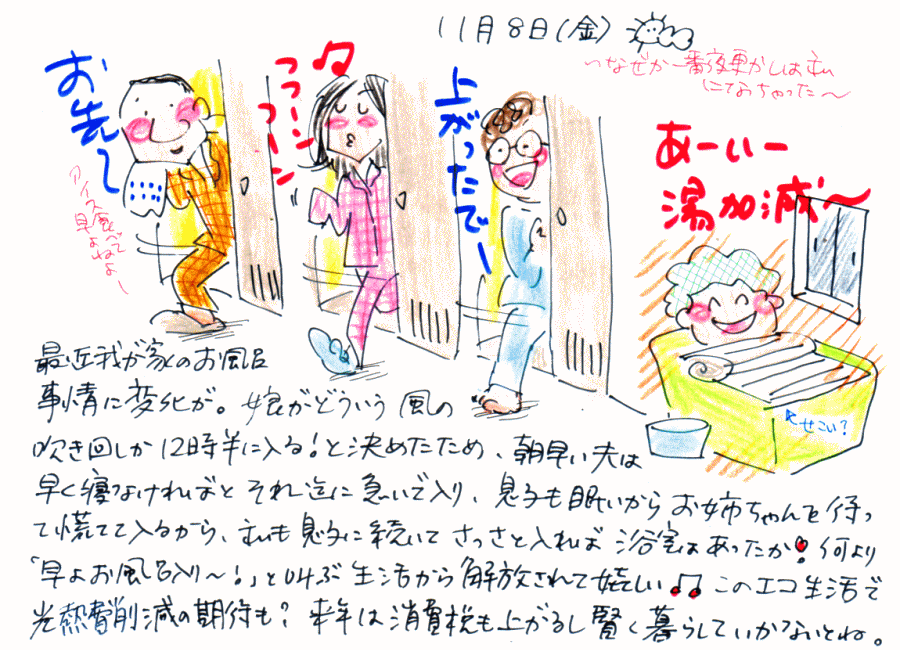 11月8日(金)
〜なぜか一番夜更かしはむい
になっちゃった〜
お先〜
アイス食べて
早よねよ〜
フフーン
フーン
上がったでー
あーいー
湯加減〜
せこい?
最近我が家のお風呂
事情に変化が。娘がどういう風の
吹き回しか12時半に入る!と決めたため、朝早い夫は
早く寝なければと それ迄に急いで入り、息子も眠いからお姉ちゃんを待っ
て慌てて入るから、むいも息子に続いて さっさと入れば 浴室はあったか!何より
「早よお風呂入り〜!」と叫ぶ生活から解放されて嬉しい♫このエコ生活で
光熱費削減の期待も?来年は消費税も上がるし賢く暮らしていかないとね。